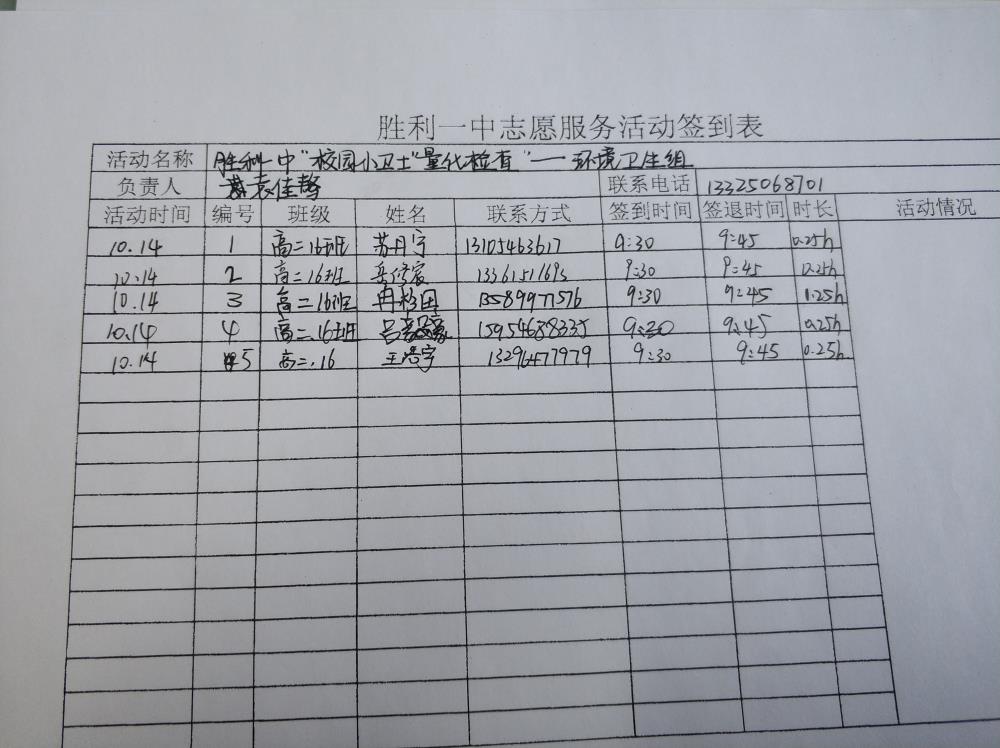 胜利一中志愿服务活动签到表
活动名称 胜利一中"校园小卫士"量化检查"一环境卫生组
负责人 袁佳馨 联系电话 13325068701
活动时间 编号 班级 姓名 联系方式 签到时间 签退时间 时长 活动情况
10.14 1 高二16班 苏丹宁 13105463617 9:30 9:45 0.25h
10.14 2 高二16班 13361511693 9:30 9:45 0.25h
10.14 3 高二16班 冉 13589977576 9:30 9:45 0.25h
10.14 4 高二.16班 吕 15954688335 9:30 9:45 0.25h
10.14 5 高二.16 王浩宇 13296477979 9:30 9:45 0.25h